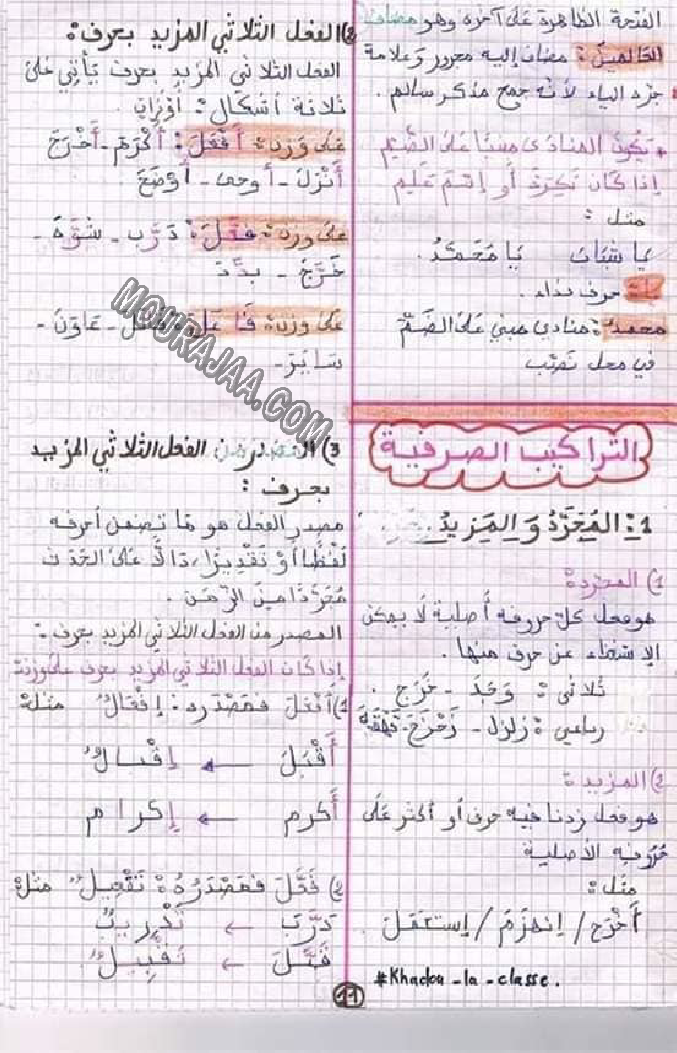 الفتحة الظاهرة على آخره وهو مضاف
الظالمين: مضاف إليه مجرور وعلامة
جره الياء لأنه جمع مذكر سالم.
• يكون المنادى مبنيا على الضّم
إذا كان نكرة أو إسم علم
مثل:
يا شبان يا محمّدُ.
يا: حرف نداء.
محمد: منادى مبني على الضمّ
في محل نصب
التراكيب الصرفية
1: المُجَرَّدُ وَ المَزِيدُ
1) المجرد:
هو فعل كلّ حروفه أصلية لا يمكن
الإستغناء عن حرف منها.
ثلاثي: وَجَدَ - خَرَجَ.
رباعي: زلزل - دَحْرَجَ - قَهْقَهَ
2) المزيد:
هو فعل زدنا فيه حرف أو أكثر على
حُرُوفِهِ الأصلية
مثل:
أَخْرَجَ / إنهزمَ / إستعملَ
#Khadoua-la-classe.
2) الفعل الثلاثي المزيد بحرف:
الفعل الثلاثي المزيد بحرف يأتي على
ثلاثة أشكال: أوزان.
على وزن: أَفْعَلَ: أَكْرَمَ - أَخْرَجَ
أَنْزَلَ - أوحى - أَوْضَحَ
على وزن: فَعَّلَ: دَرَّبَ - شَوَّهَ -
خَرَّجَ - بدَّدَ
على وزن: فَاعَلَ: - عَاوَنَ -
سَايَرَ -
3) المصدر من الفعل الثلاثي المزيد
بحرف:
مصدر الفعل هو ما تضمن أحرفه
لَفْظًا أو تَقْدِيرًا، دالّ على الحَدَث
مُجَرَّدًا مِنَ الزّمن.
المصدر من الفعل الثلاثي المزيد بحرف:
إذا كان الفعل الثلاثي المزيد بحرف على وزن:
1) أَفْعَلَ فمَصْدَره: إِفْعَالٌ مثل:
أَقْبَلَ ← إقْبالٌ
أكرم ← إكرام
2) فَعَّلَ فمَصْدَرُهُ: تَفْعِيلٌ مثل:
دَرَّبَ ← تَدْرِيبٌ
قَبَّلَ ← تَقْبِيلٌ
11
MOURAJAA.COM